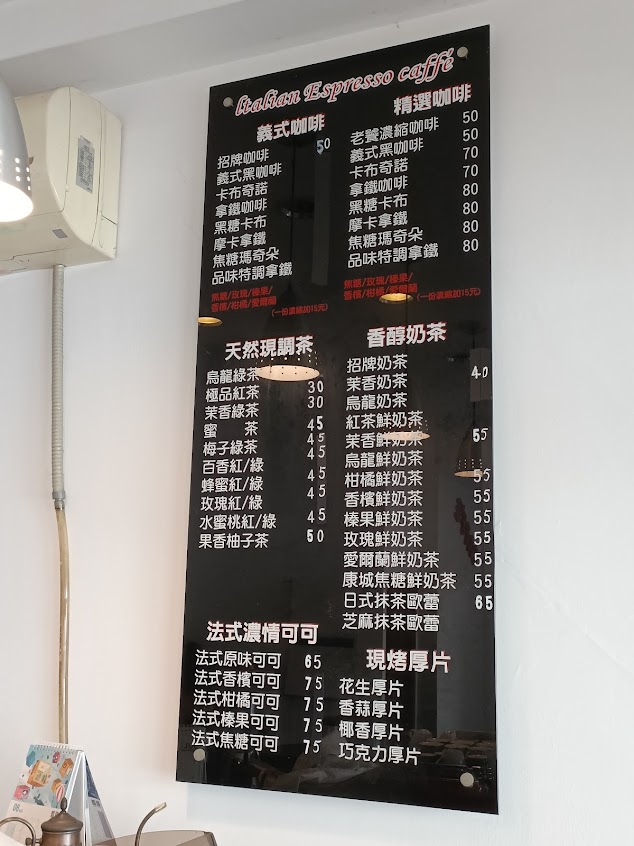 Italian Espresso caffé
義式咖啡
招牌咖啡 50
義式黑咖啡
卡布奇諾
拿鐵咖啡
黑糖卡布
摩卡拿鐵
焦糖瑪奇朵
品味特調拿鐵
焦糖/玫瑰/榛果/
香檳/柑橘/愛爾蘭 (一份濃縮加15元)
精選咖啡
老饕濃縮咖啡 50
義式黑咖啡 50
卡布奇諾 70
拿鐵咖啡 70
黑糖卡布 80
摩卡拿鐵 80
焦糖瑪奇朵 80
品味特調拿鐵 80
焦糖/玫瑰/榛果/
香檳/柑橘/愛爾蘭 (一份濃縮加15元)
天然現調茶
烏龍綠茶
極品紅茶 30
茉香綠茶 30
蜜 茶 45
梅子綠茶 45
百香紅/綠 45
蜂蜜紅/綠 45
玫瑰紅/綠 45
水蜜桃紅/綠 45
果香柚子茶 50
香醇奶茶
招牌奶茶 40
茉香奶茶
烏龍奶茶
紅茶鮮奶茶
茉香鮮奶茶 55
烏龍鮮奶茶
柑橘鮮奶茶 55
香檳鮮奶茶 55
榛果鮮奶茶 55
玫瑰鮮奶茶 55
愛爾蘭鮮奶茶 55
康城焦糖鮮奶茶 55
日式抹茶歐蕾 65
芝麻抹茶歐蕾
法式濃情可可
法式原味可可 65
法式香檳可可 75
法式柑橘可可 75
法式榛果可可 75
法式焦糖可可 75
現烤厚片
花生厚片
香蒜厚片
椰香厚片
巧克力厚片